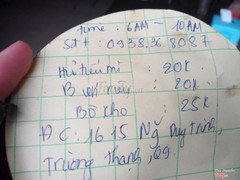 time : 6AM - 10AM
Sđt : 0938.36.8087
Hủ tiếu mì : 20K
B : 20K
Bò kho : 25K
ĐC: 1615 Ng Duy Trinh,
Trường Thạnh, Q9